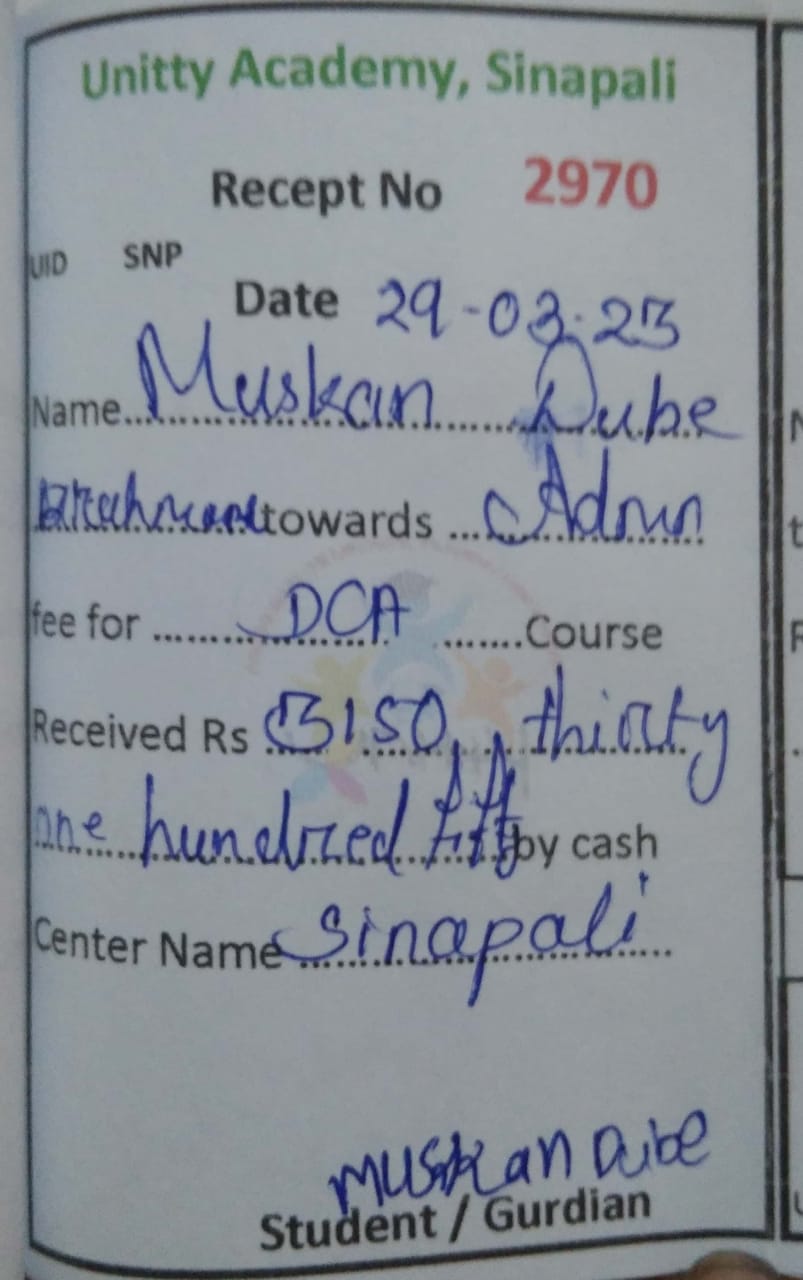 Unitty Academy, Sinapali
Recept No 2970
UID SNP
Date 29-03-23
Name Muskan Dube
towards Admn
fee for DCA Course
Received Rs 3150, thirty
one hundred fifty by cash
Center Name Sinapali
Muskan Dube
Student / Gurdian